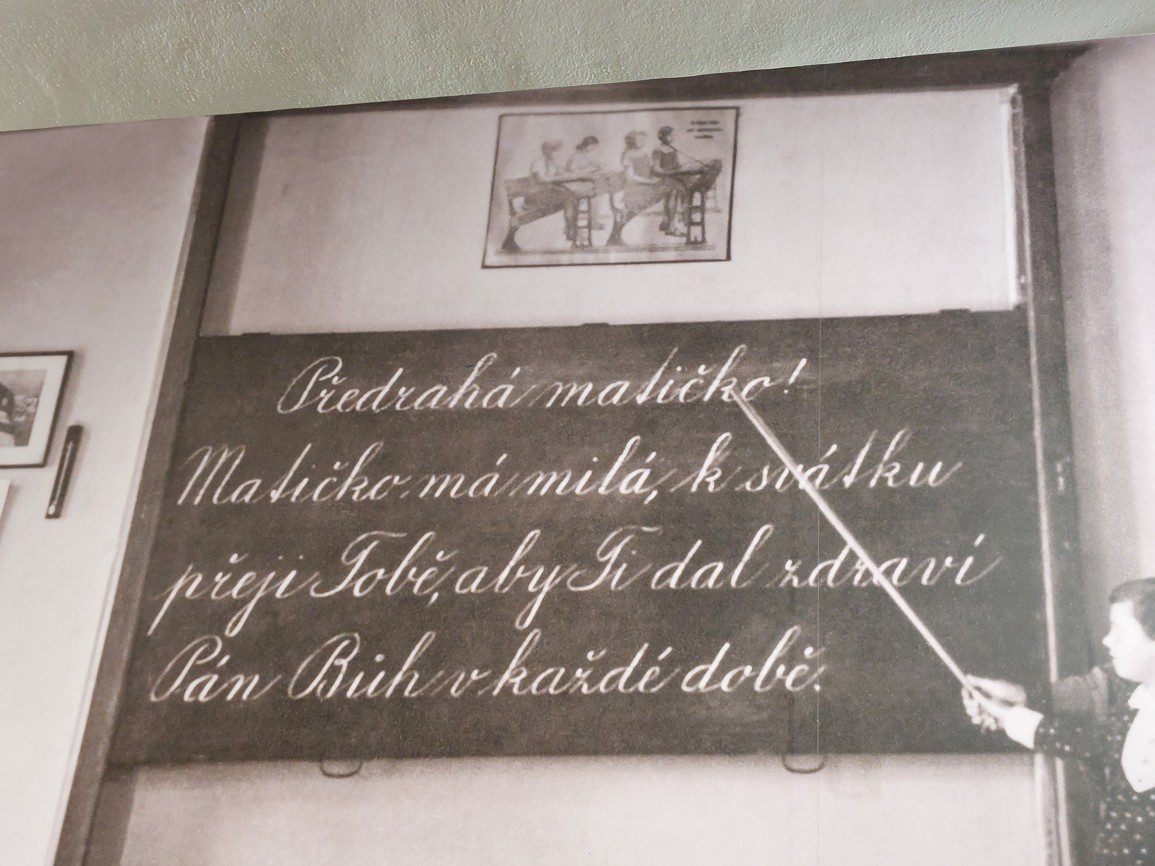 Předrahá matičko!
Matičko má milá, k svátku
přeji Tobě, aby Ti dal zdraví
Pán Bůh v každé době.